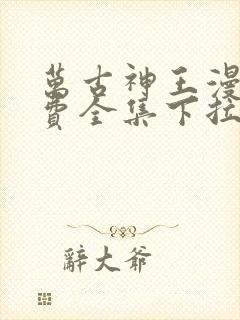 萬古神王漫
費全集下拉
辭大爺